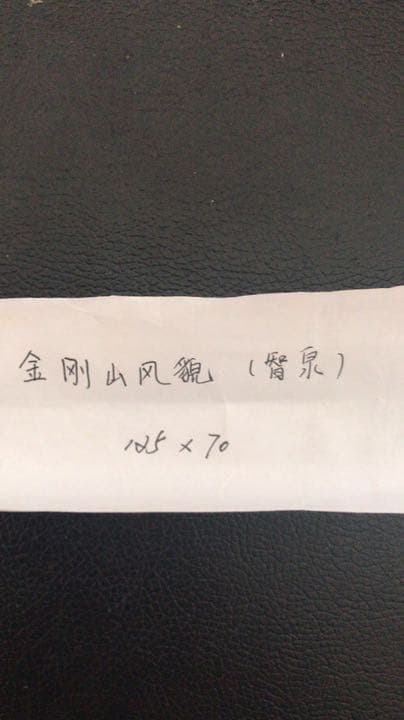 金刚山风貌（智泉）
125×70